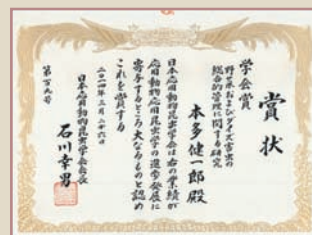 賞状
学会賞
野生およびダイズ害虫の
総合的管理に関する研究
本多健一郎殿
日本応用動物昆虫学会は右の業績が
応用動物応用昆虫学の進歩発展に
寄与するところ大なるものと認め
これを賞する
二〇一四年三月二十六日
日本応用動物昆虫学会会長
石川幸男
第百九号